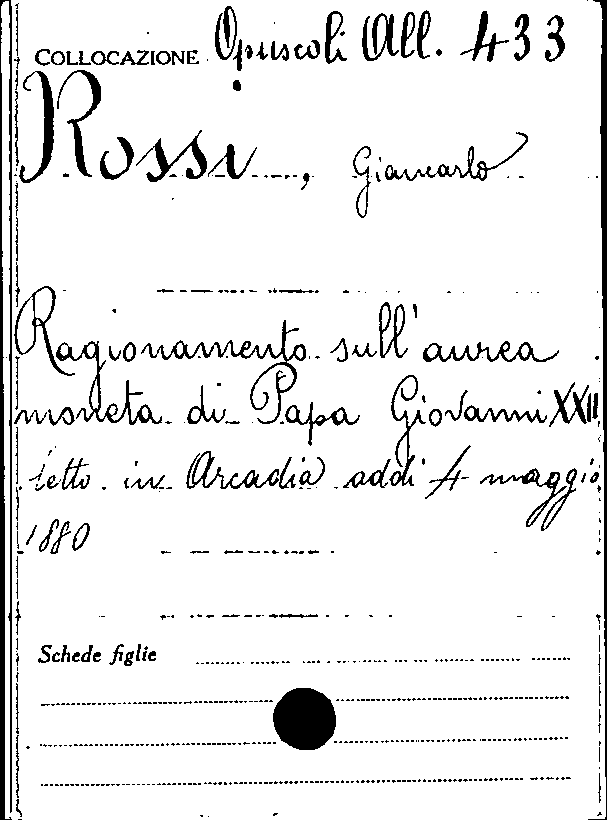 COLLOCAZIONE Opuscoli All. 433
Rossi, Giancarlo
Ragionamento sull'aurea
moneta di Papa Giovanni XXII
letto in Arcadia addi 4 maggio
1880
Schede figlie